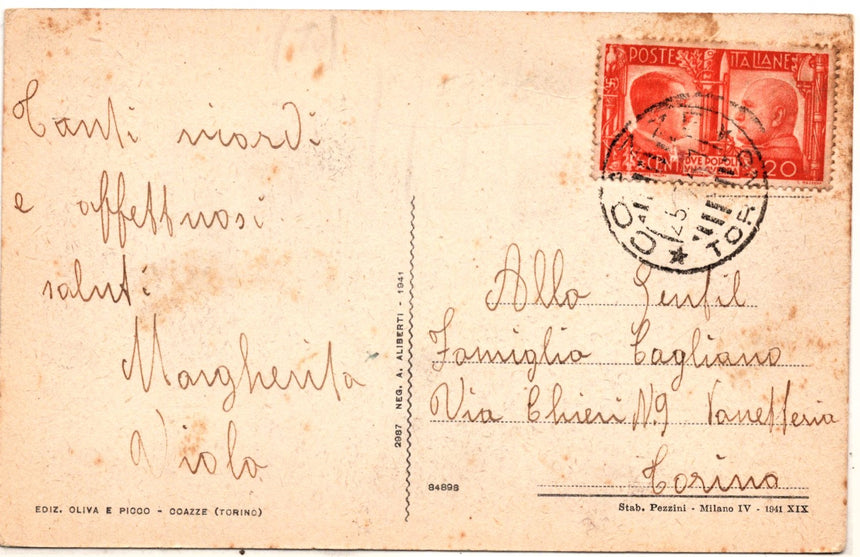 Tanti ricordi
e affettuosi
saluti
Margherita
Viola
EDIZ. OLIVA E PICCO - COAZZE (TORINO)
2987 NEG. A. ALIBERTI - 1941
POSTE ITALIANE
CENT 20
DUE POPOLI
COAZZE
TORINO
Alla Gentil
Famiglia Cagliano
Via Chieri N 9 Panetteria
Torino
84898
Stab. Pezzini - Milano IV - 1941 XIX